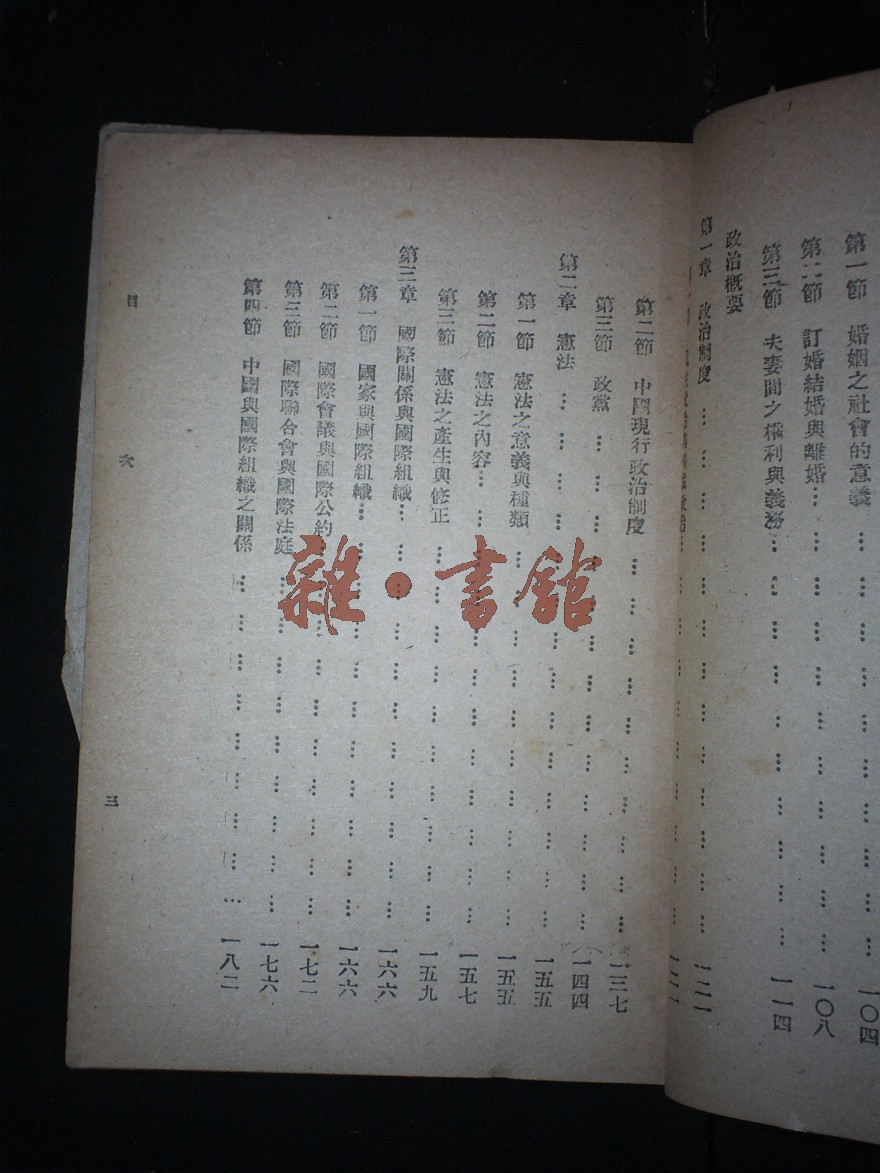 第一節 婚姻之社會的意義… … … … … … … 一〇四
第二節 訂婚結婚與離婚… … … … … … … 一〇八
第三節 夫妻間之權利與義務… … … … … … … 一一四
政治概要
第一章 政治制度 … … … … … … … … … 一二一
… … … … … … … 一二一
第二節 中國現行政治制度 … … … … … … … … 一三七
第三節 政黨 … … … … … … … … … … 一四四
第二章 憲法 … … … … … … … … … … 一五五
第一節 憲法之意義與種類… … … … … … … … 一五五
第二節 憲法之內容… … … … … … … … … 一五七
第三節 憲法之產生與修正 … … … … … … … … 一五九
第三章 國際關係與國際組織… … … … … … … … 一六六
第一節 國家與國際組織… … … … … … … … 一六六
第二節 國際會議與國際公約… … … … … … … … 一七二
第三節 國際聯合會與國際法庭… … … … … … … … 一七六
第四節 中國與國際組織之關係 … … … … … … … … 一八二
目 次
三
雜·書館